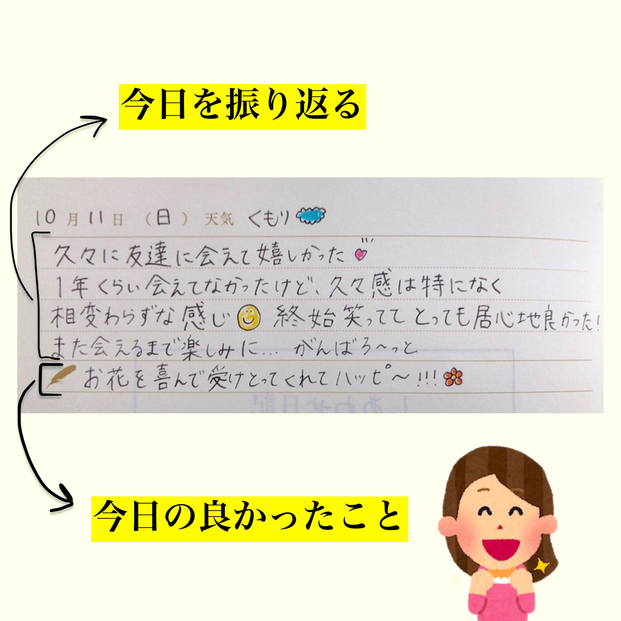 今日を振り返る
10月11日（日）天気 くもり
久々に友達に会えて嬉しかった
1年くらい会えてなかったけど、久々感は特になく
相変わらずな感じ 終始笑ってて とっても居心地良かった!
また会えるまで楽しみに... がんばろ〜っと
お花を喜んで受けとってくれてハッピ〜!!!
今日の良かったこと